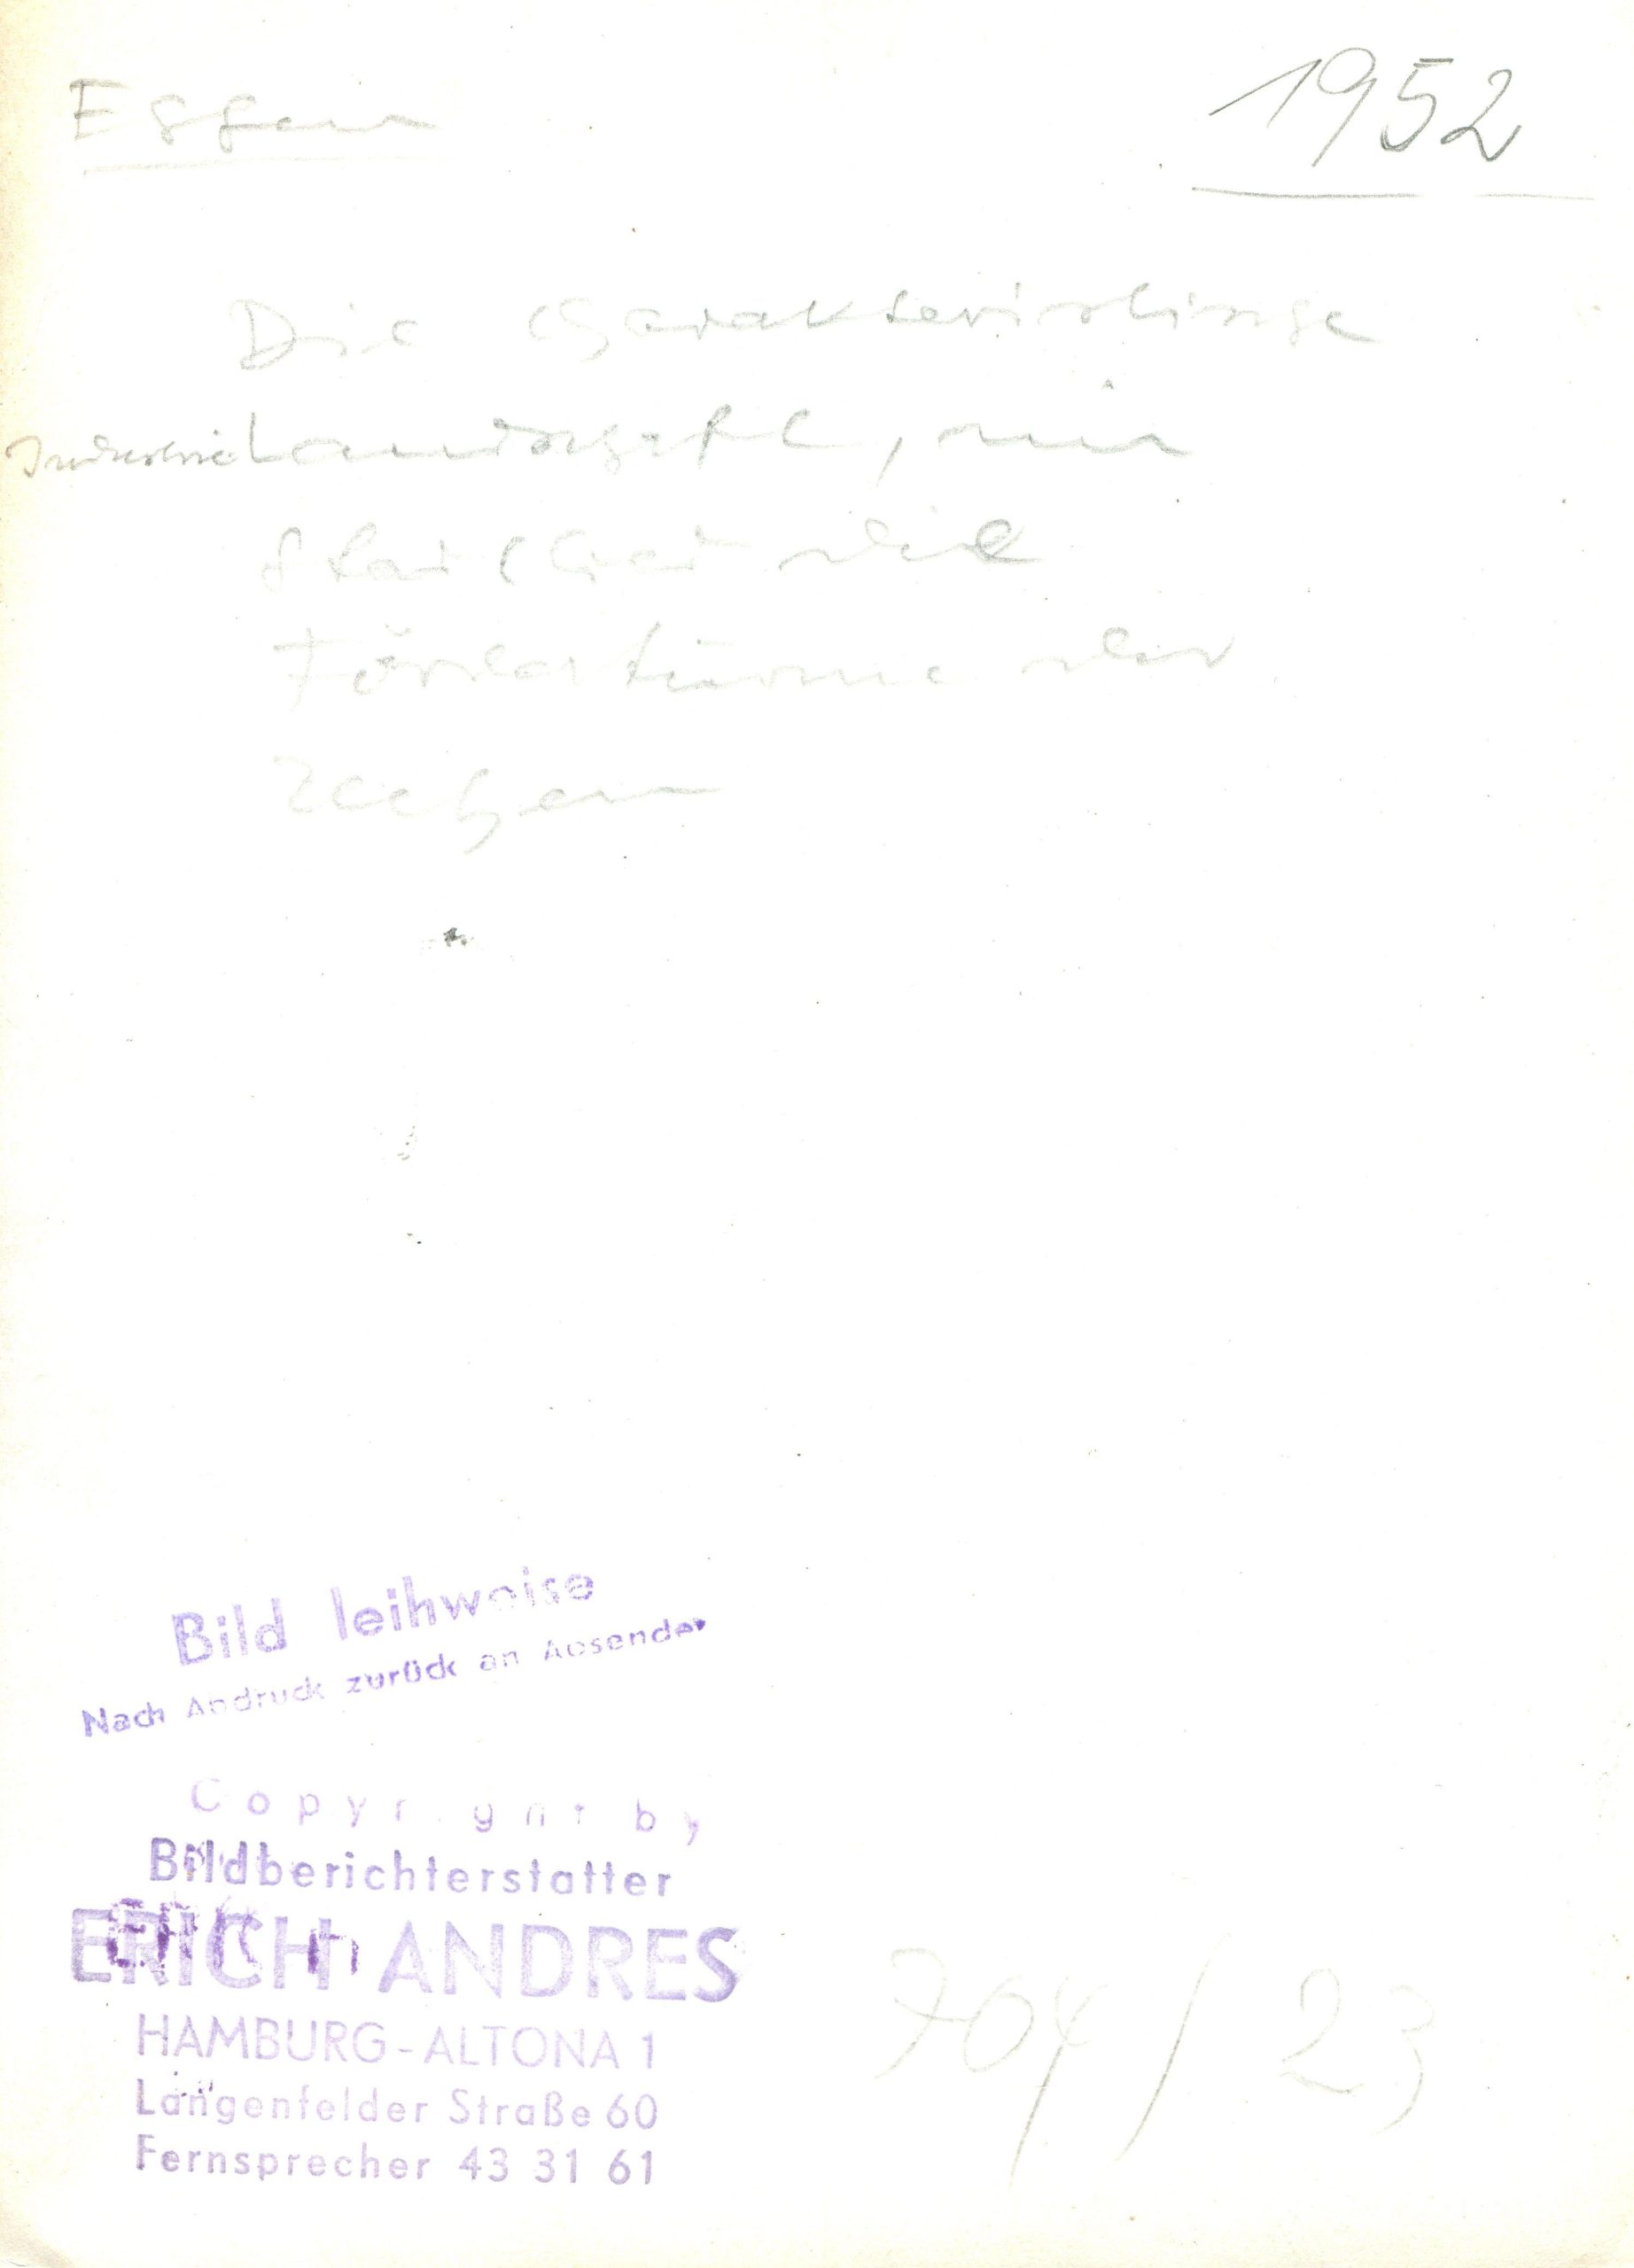 Essen
1952
Die charakteristische
Industrie Landschaft,
die
Fördertürme der
Zechen
Bild leihweise
Nach Andruck zurück an Absender
Copyright by
Bildberichterstatter
ERICH ANDRES
HAMBURG-ALTONA 1
Langenfelder Straße 60
Fernsprecher 43 31 61
704/23